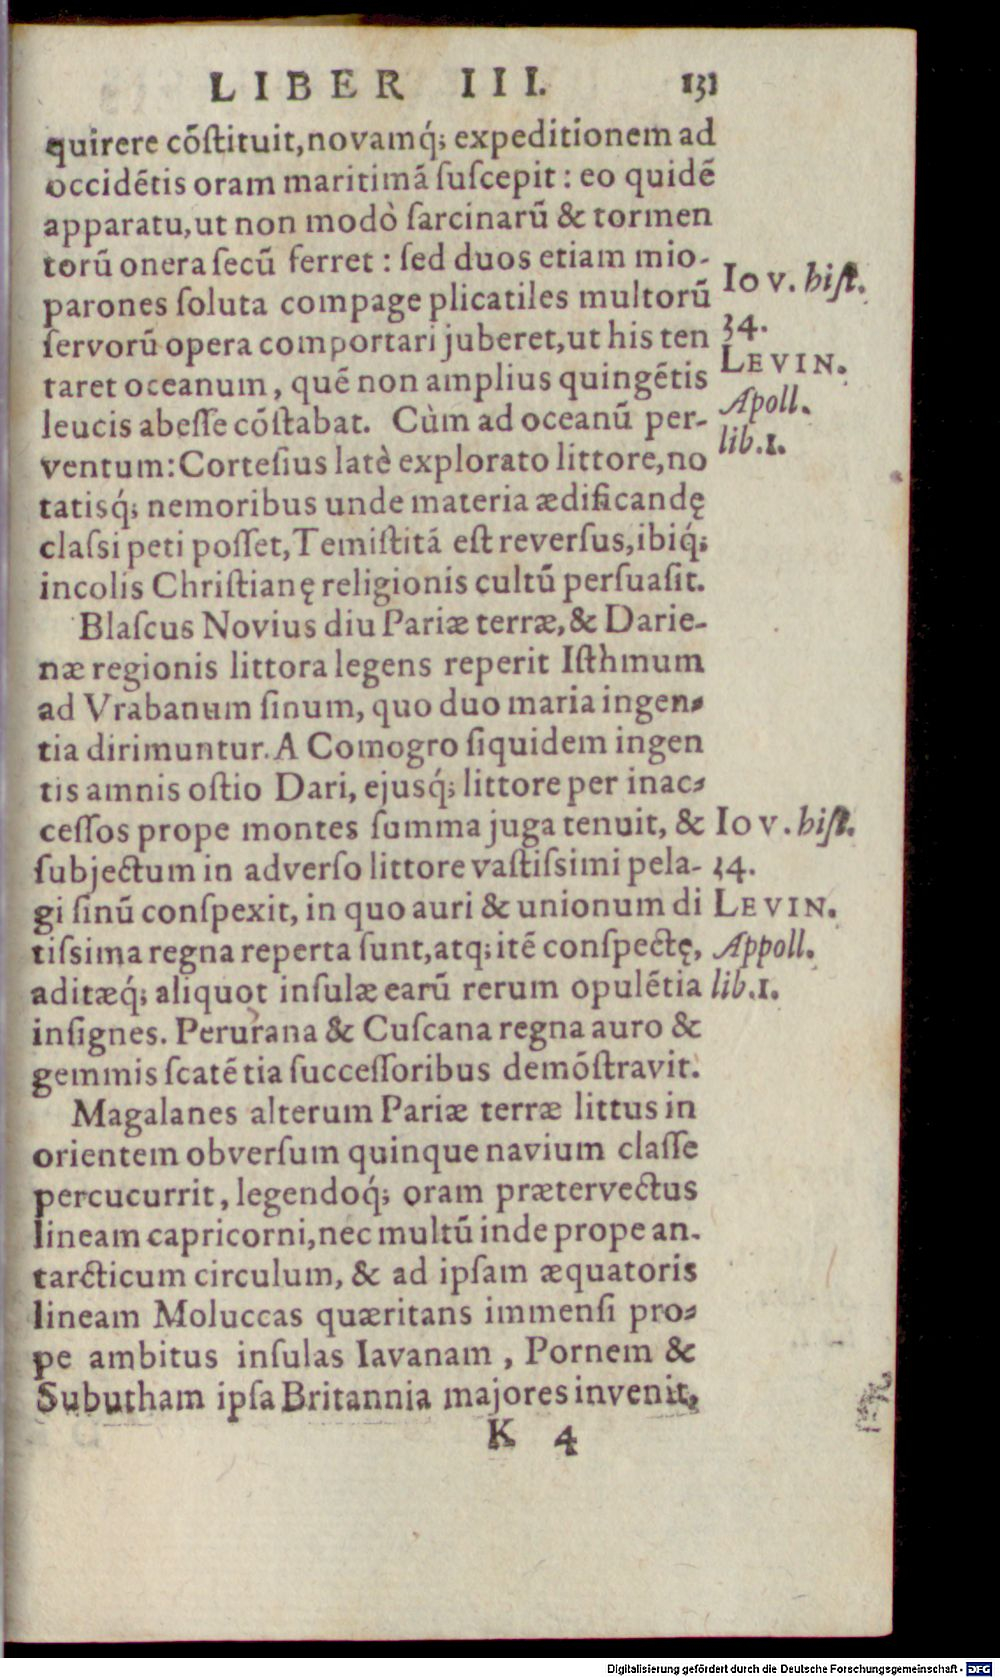 LIBER III. 131
quirere cōſtituit, novamq́; expeditionem ad
occidētis oram maritimā ſuſcepit: eo quidē
apparatu, ut non modò ſarcinarū & tormen
torū onera ſecū ferret: ſed duos etiam mio-
parones ſoluta compage plicatiles multorū
ſervorū opera comportari juberet, ut his ten
taret oceanum, quē non amplius quingētis
leucis abeſſe cōſtabat. Cùm ad oceanū per-
ventum: Corteſius latè explorato littore, no
tatisq́; nemoribus unde materia ædificandę
claſsi peti poſſet, Temiſtitā eſt reverſus, ibiq́;
incolis Chriſtianę religionis cultū perſuaſit.
Iov. hiſt.
34.
LEVIN.
Apoll.
lib.1.
Blaſcus Novius diu Pariæ terræ, & Darie-
næ regionis littora legens reperit Iſthmum
ad Vrabanum ſinum, quo duo maria ingen-
tia dirimuntur. A Comogro ſiquidem ingen
tis amnis oſtio Dari, ejusq́; littore per inac-
ceſſos prope montes ſumma juga tenuit, &
ſubjectum in adverſo littore vaſtiſsimi pela-
gi ſinū conſpexit, in quo auri & unionum di
tiſsima regna reperta ſunt, atq; itē conſpectę,
aditæq́; aliquot inſulæ earū rerum opulētia
inſignes. Perurana & Cuſcana regna auro &
gemmis ſcatētia ſucceſſoribus demōſtravit.
Iov. hiſt.
34.
LEVIN.
Appoll.
lib.1.
Magalanes alterum Pariæ terræ littus in
orientem obverſum quinque navium claſſe
percucurrit, legendoq́; oram prætervectus
lineam capricorni, nec multū inde prope an-
tarcticum circulum, & ad ipſam æquatoris
lineam Moluccas quæritans immenſi pro-
pe ambitus inſulas Iavanam, Pornem &
Subutham ipſa Britannia majores invenit,
K 4
Digitalisierung gefördert durch die Deutsche Forschungsgemeinschaft - DFG